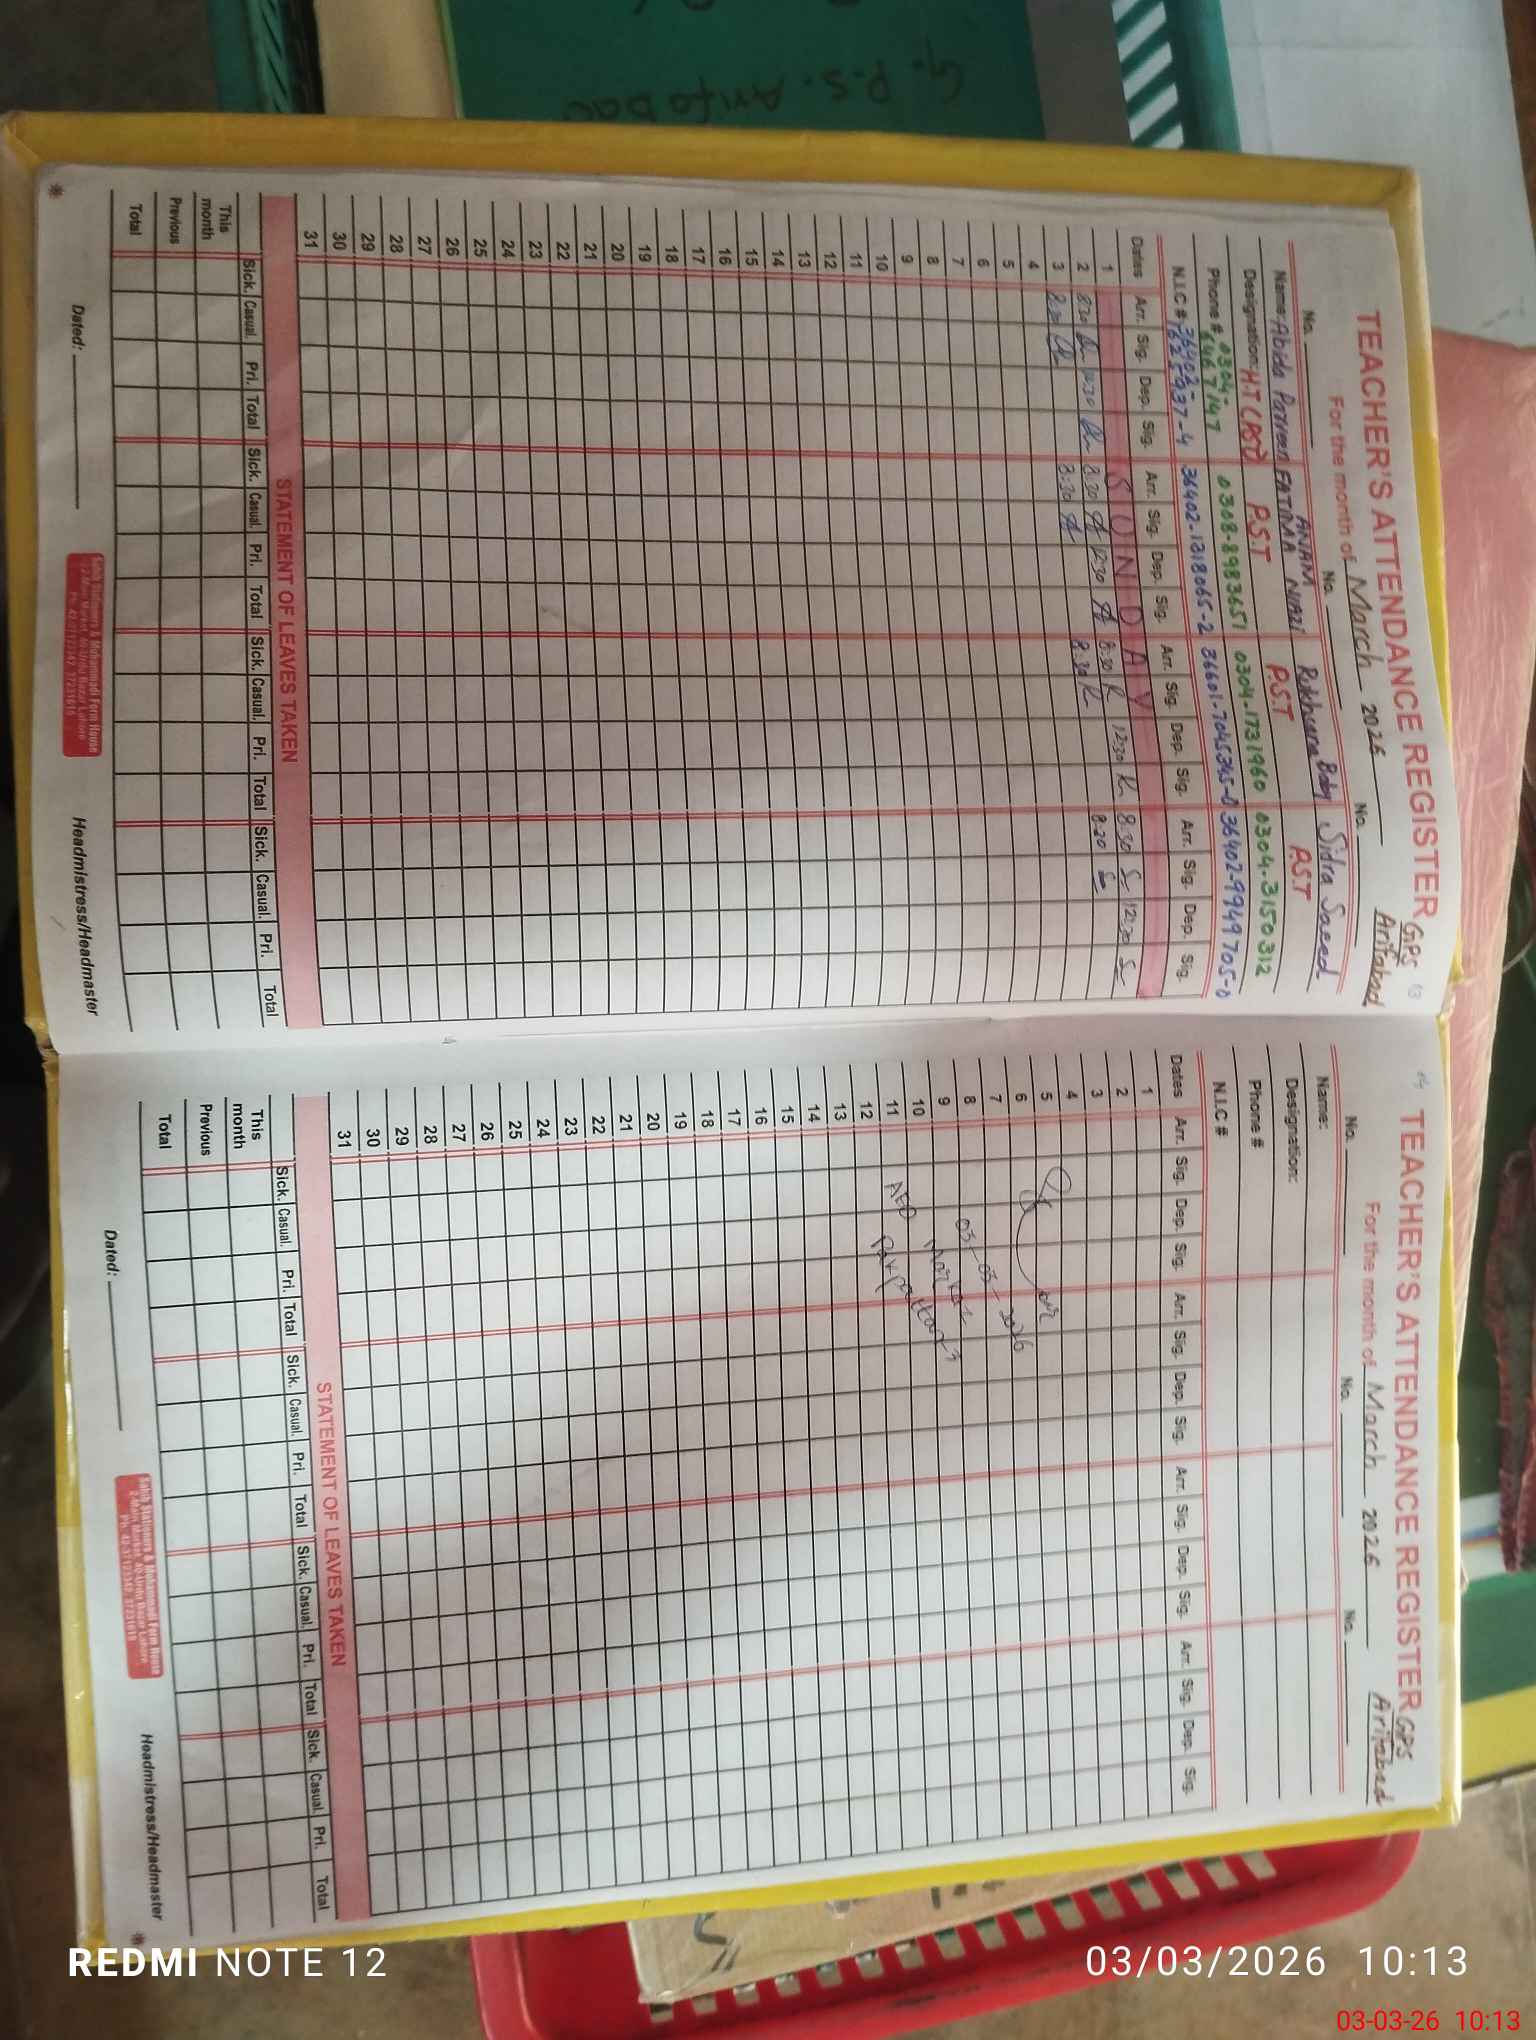 G.P.S. Arifabad
TEACHER'S ATTENDANCE REGISTER GPS 63
For the month of March 2026 Arifabad
No. No. No.
Name: Abida Parveen FATIMA ANAM NIAZI Rukhsana Baby Sidra Saeed
Designation: H.T (PST) P.S.T P.S.T P.S.T
Phone # 0304-6467147 0308-8983651 0304-1731960 0304-3150312
N.I.C # 36402-1318065-2 36601-7045345-0 36402-9949705-0
Dates Arr. Sig. Dep. Sig. Arr. Sig. Dep. Sig. Arr. Sig. Dep. Sig. Arr. Sig. Dep. Sig.
1 SUNDAY
2 8:30 12:30 8:30 12:30 8:30 12:30 8:30 12:30
3 8:30 8:30 8:30 8:20
4
5
6
7
8
9
10
11
12
13
14
15
16
17
18
19
20
21
22
23
24
25
26
27
28
29
30
31
STATEMENT OF LEAVES TAKEN
Sick. Casual. Pri. Total Sick. Casual. Pri. Total Sick. Casual. Pri. Total Sick. Casual. Pri. Total
This month
Previous
Total
Dated:
Sabih Stationers & Mohammadi Form House
2-Main Market, 40-Urdu Bazar Lahore
Ph: 42-37123342, 37231619
Headmistress/Headmaster
64 TEACHER'S ATTENDANCE REGISTER GPS
For the month of March 2026 Arifabad
No. No. No.
Name:
Designation:
Phone #
N.I.C #
Dates Arr. Sig. Dep. Sig. Arr. Sig. Dep. Sig. Arr. Sig. Dep. Sig. Arr. Sig. Dep. Sig.
1
2
3
4
5
6
7
8
9
10
11
12
13
14
15
16
17
18
19
20
21
22
23
24
25
26
27
28
29
30
31
03-03-2026
AEO Markaz
Pakpattan 3
STATEMENT OF LEAVES TAKEN
Sick. Casual. Pri. Total Sick. Casual. Pri. Total Sick. Casual. Pri. Total Sick. Casual. Pri. Total
This month
Previous
Total
Dated:
Sabih Stationers & Mohammadi Form House
2-Main Market, 40-Urdu Bazar Lahore
Ph: 42-37123342, 37231619
Headmistress/Headmaster
REDMI NOTE 12
03/03/2026 10:13
03-03-26 10:13